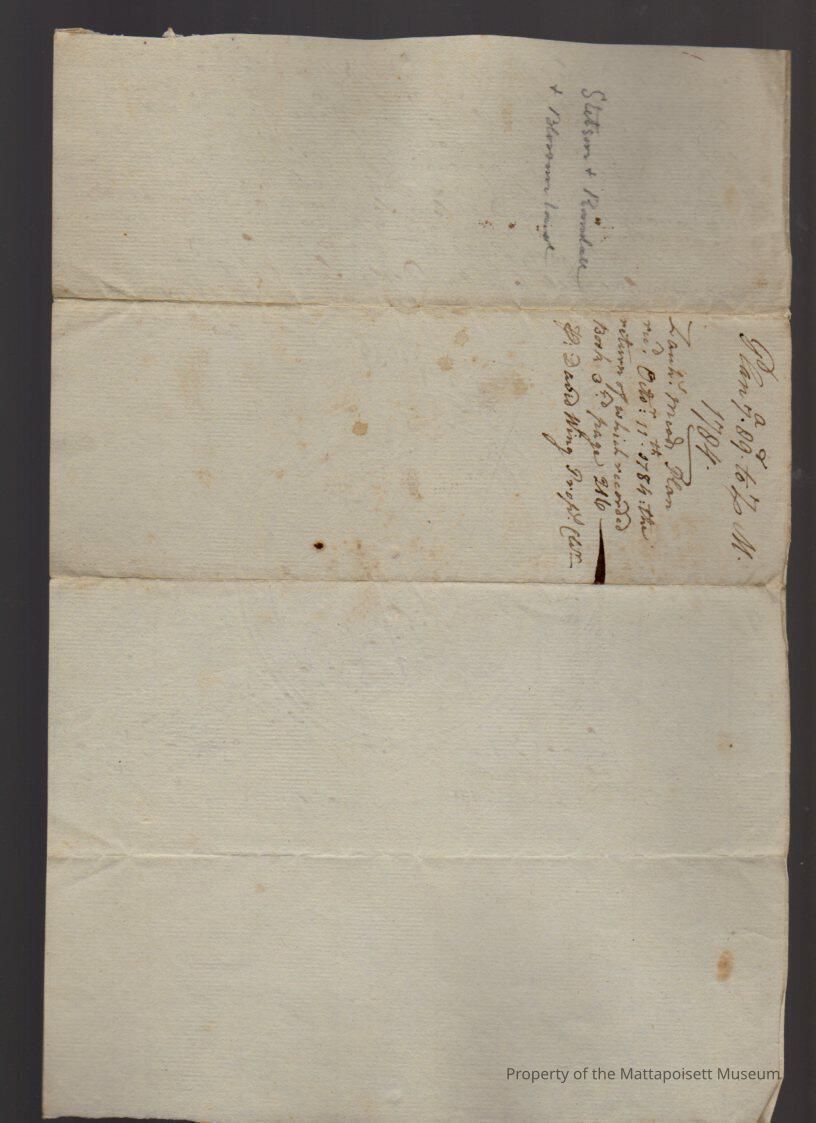 Stetson & Randall
& Blossom land
Plan 7. 89. to M.
1784.
Plan
rec.d Octo.r 11.th 1784: the
return of which recorded
Book 3.rd page 216
P.r David Wing Prop.rs Clerk
Property of the Mattapoisett Museum